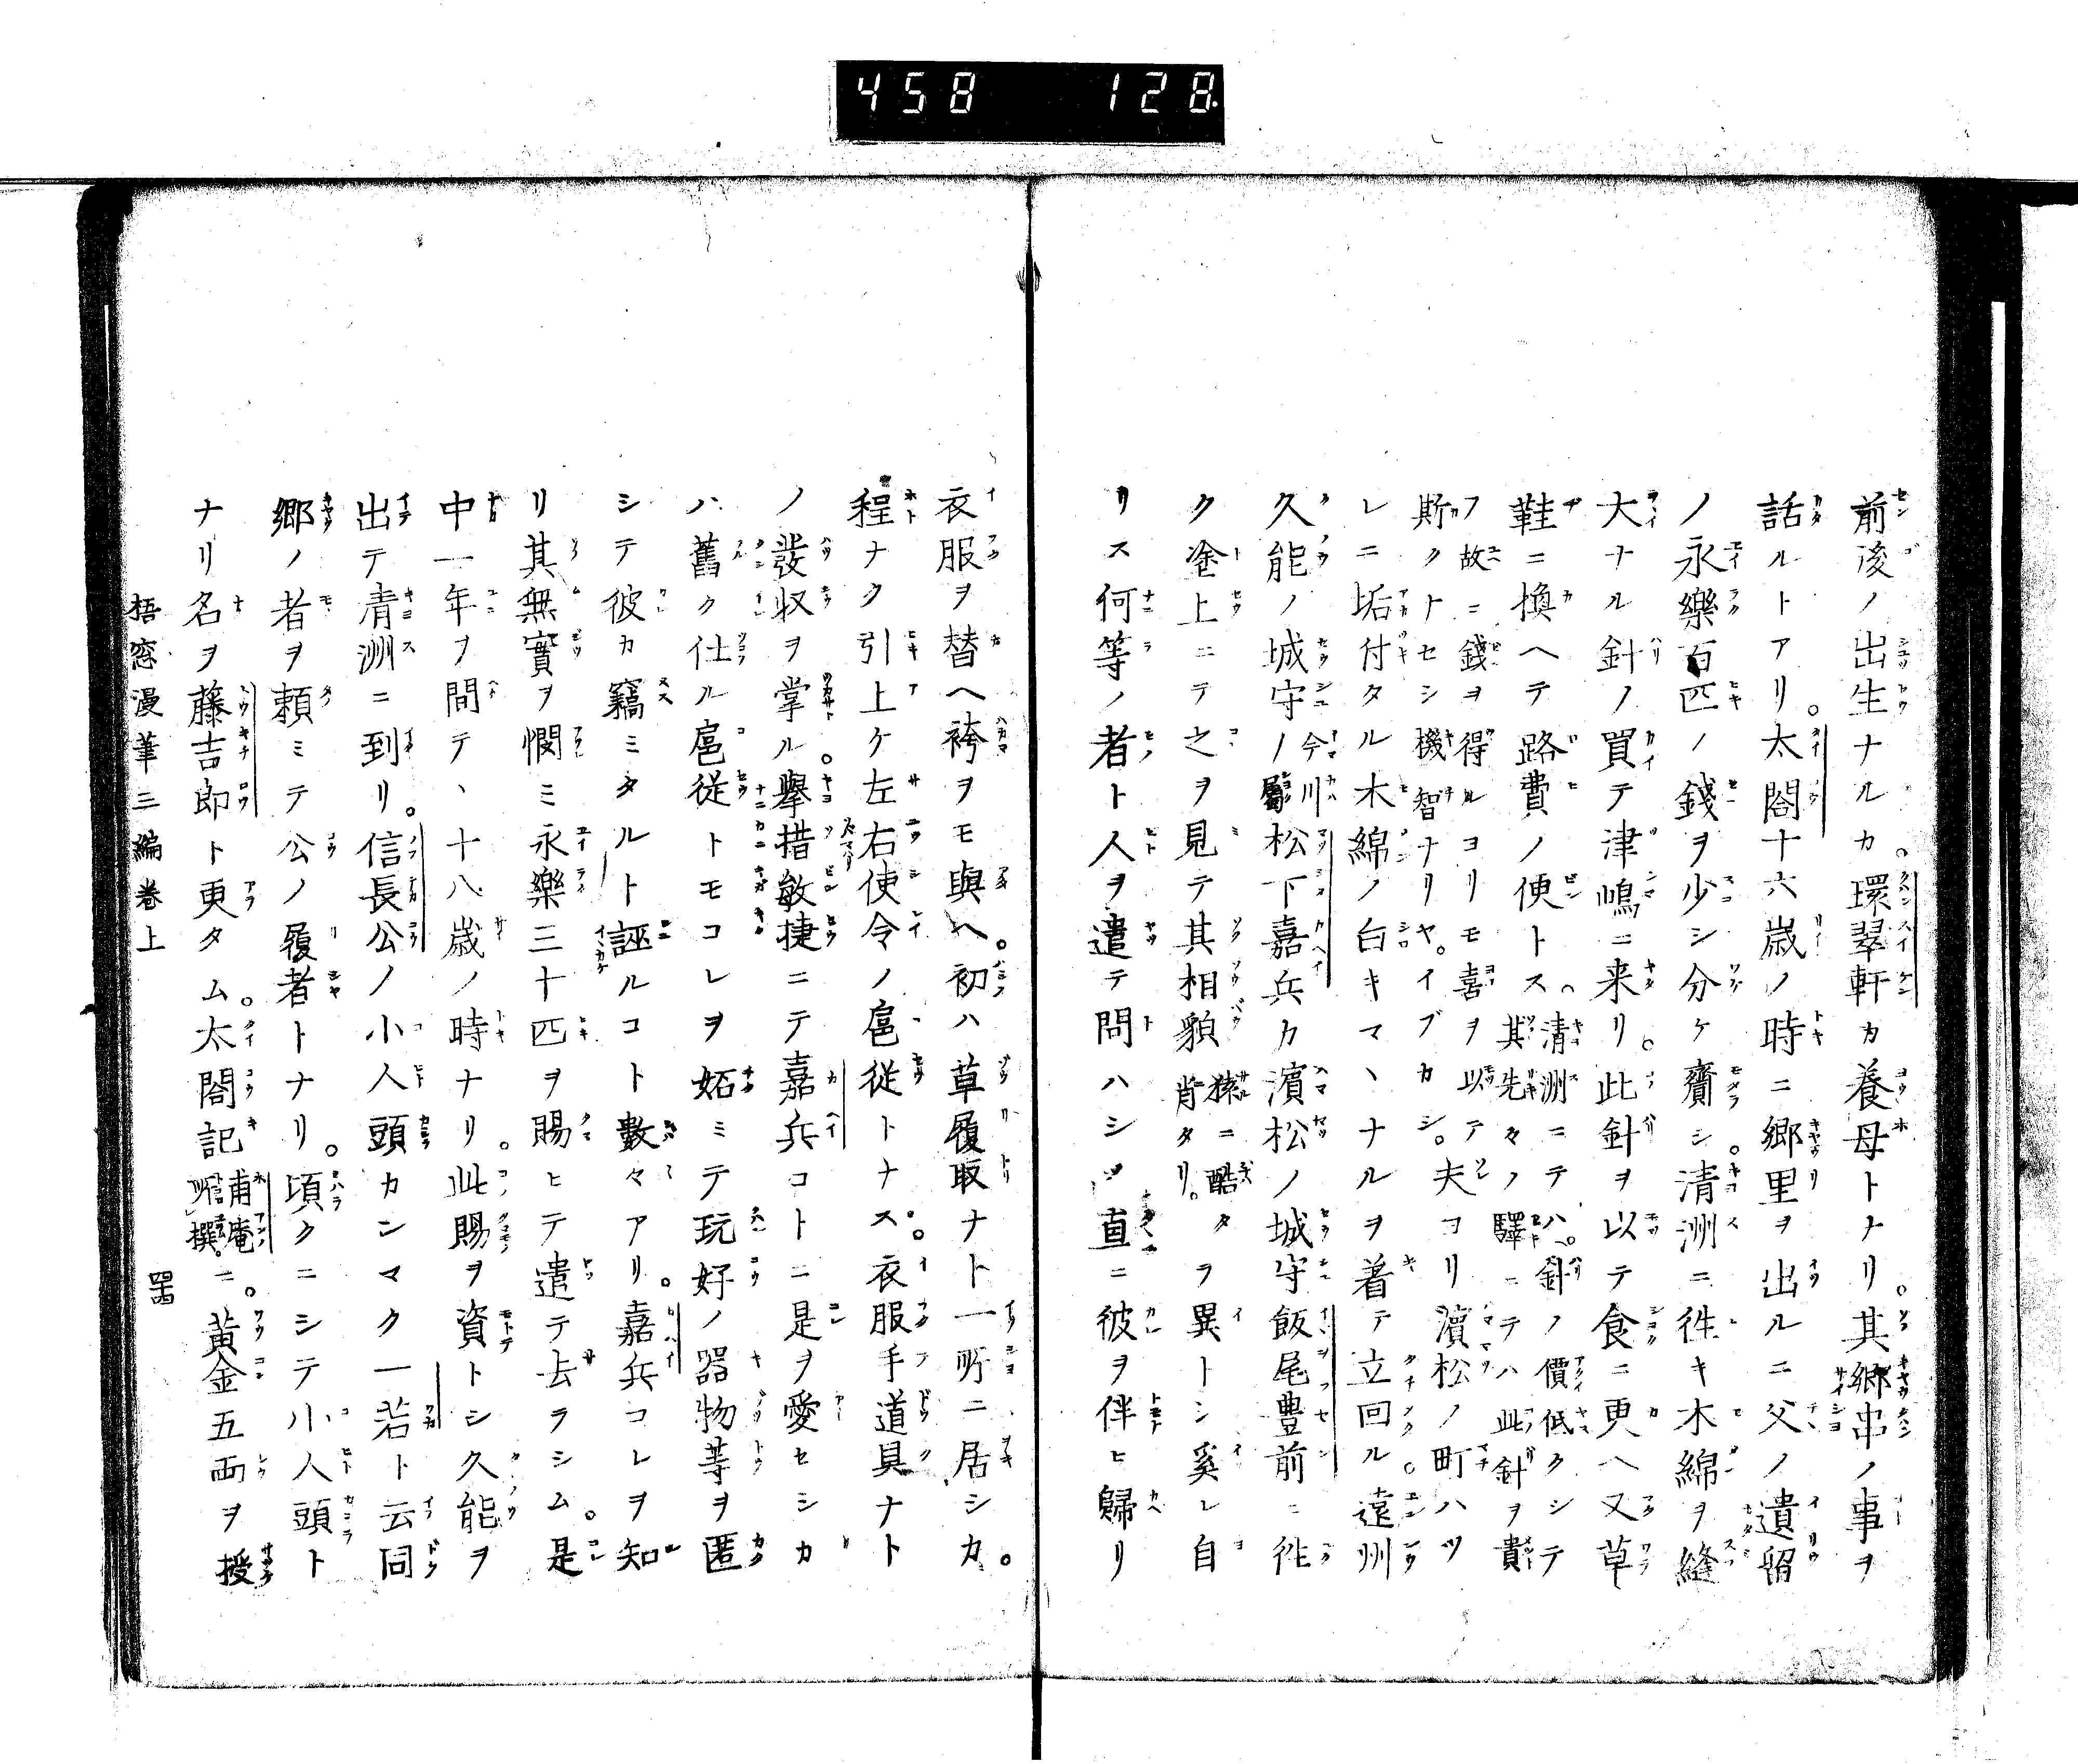 458 128
前後ノ出生ナルカ。環翠軒カ養母トナリ。其郷串ノ事ヲ
話ルトアリ。太閤十六歳ノ時ニ郷里ヲ出ルニ父ノ遺留
ノ永樂百匹ノ錢ヲ少シ分ケ齎シ。清洲ニ徃キ木綿ヲ縫
大ナル針ノ買テ津嶋ニ来リ。此針ヲ以テ食ニ更ヘ又草
鞋ニ換ヘテ路費ノ便トス。清洲ニテハ。針ノ價低クシテ其先々ノ驛ニテハ此針ヲ貴
フ故ニ錢ヲ得ルヨリモ喜ヲ以テ
斯クトセシ機智ナリヤ。イブカシ。夫ヨリ濵松ノ町ハツ
レニ垢付タル木綿ノ白キマヽナルヲ着テ立回ル。遠州
久能ノ城守ノ今川屬松下嘉兵カ濵松ノ城守飯尾豊前ニ徃
ク塗上ニテ之ヲ見テ其相貌猿ニ酷タ肖タリ。タラ異トシ奚レ自
リス何等ノ者ト人ヲ遣テ問ハシメ直ニ彼ヲ伴ヒ歸リ
衣服ヲ替ヘ袴ヲモ與ヘ。初ハ草履取ナト一所ニ居シカ。
程ナク引上ケ左右使令ノ扈従トナス。衣服手道具ナト
ノ發収ヲ掌ル。擧措敏捷ニテ嘉兵コトニ是ヲ愛セシカ
ハ舊ク仕ル扈従トモコレヲ妬ミテ玩好ノ器物等ヲ匿
シテ彼カ竊ミタルト誣ルコト數々アリ。嘉兵コレヲ知
リ其無實ヲ憫ミ永樂三十匹ヲ賜ヒテ遣テ去ラシム。是
中一年ヲ間テ、十八歳ノ時ナリ。此賜ヲ資トシ久能ヲ
出テ清洲ニ到リ。信長公ノ小人頭カンマク一若ト云同
郷ノ者ヲ頼ミテ公ノ履者トナリ。頃クニシテ小人頭ト
ナリ名ヲ藤吉郎ト更タム。太閤記甫庵所撰ニ。黃金五両ヲ授
梧窓漫筆三編卷上